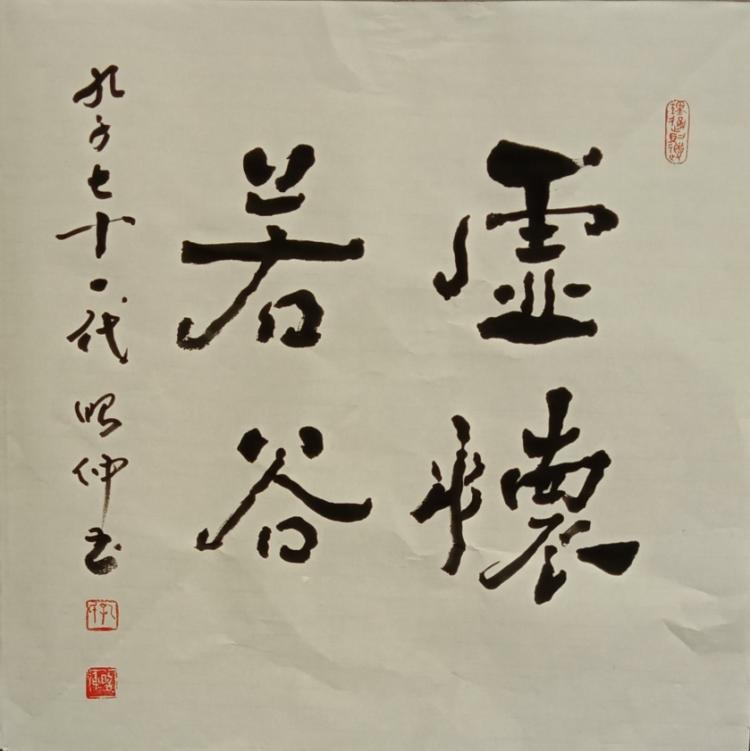 虛懷
若谷
孔子七十一代昭仲书